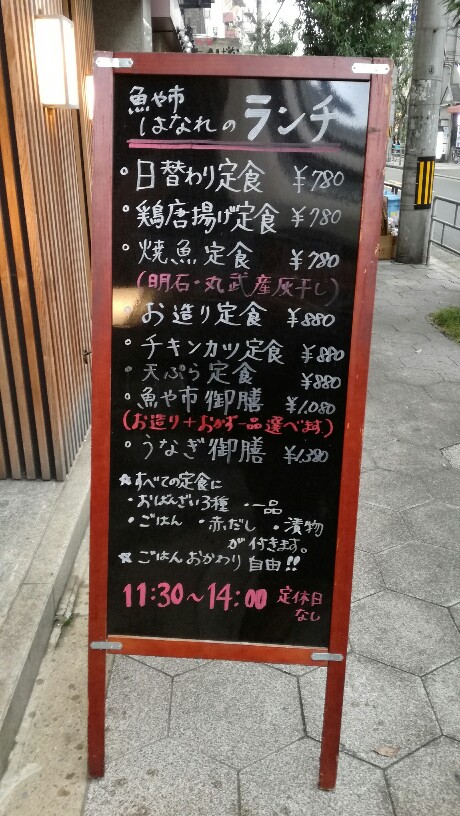 魚や市
はなれの ランチ
・日替わり定食 ¥780
・鶏唐揚げ定食 ¥780
・焼魚定食 ¥780
(明石・丸武産灰干し)
・お造り定食 ¥880
・チキンカツ定食 ¥880
・天ぷら定食 ¥880
・魚や市御膳 ¥1,080
(お造り+おかず一品選べます)
・うなぎ御膳 ¥1,380
★すべての定食に
・おばんざい3種 ・一品
・ごはん ・赤だし ・漬物
が付きます。
★ごはんおかわり自由!!
11:30~14:00 定休日
なし